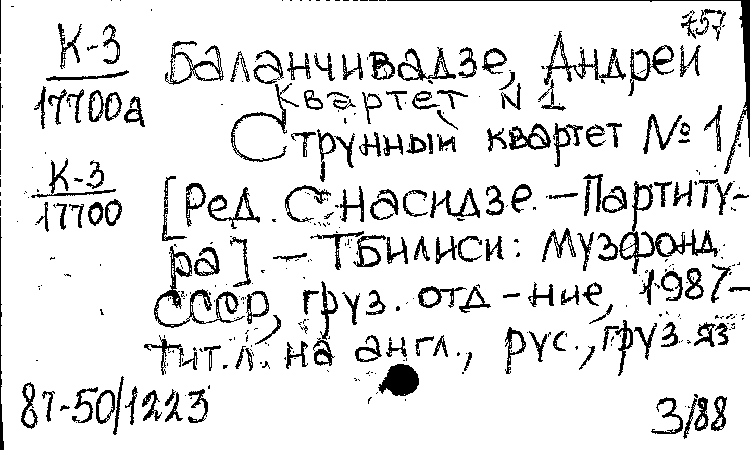 757
К-3 Баланчивадзе, Андрей
17700а Квартет N 1
Струнный квартет № 1/
К-3 [Ред. С. Насидзе. – Партиту-
17700 ра]. – Тбилиси: Музфонд
СССР, груз. отд-ние, 1987–
Тит. л. на англ., рус., груз. яз
87-50/1223 3/88